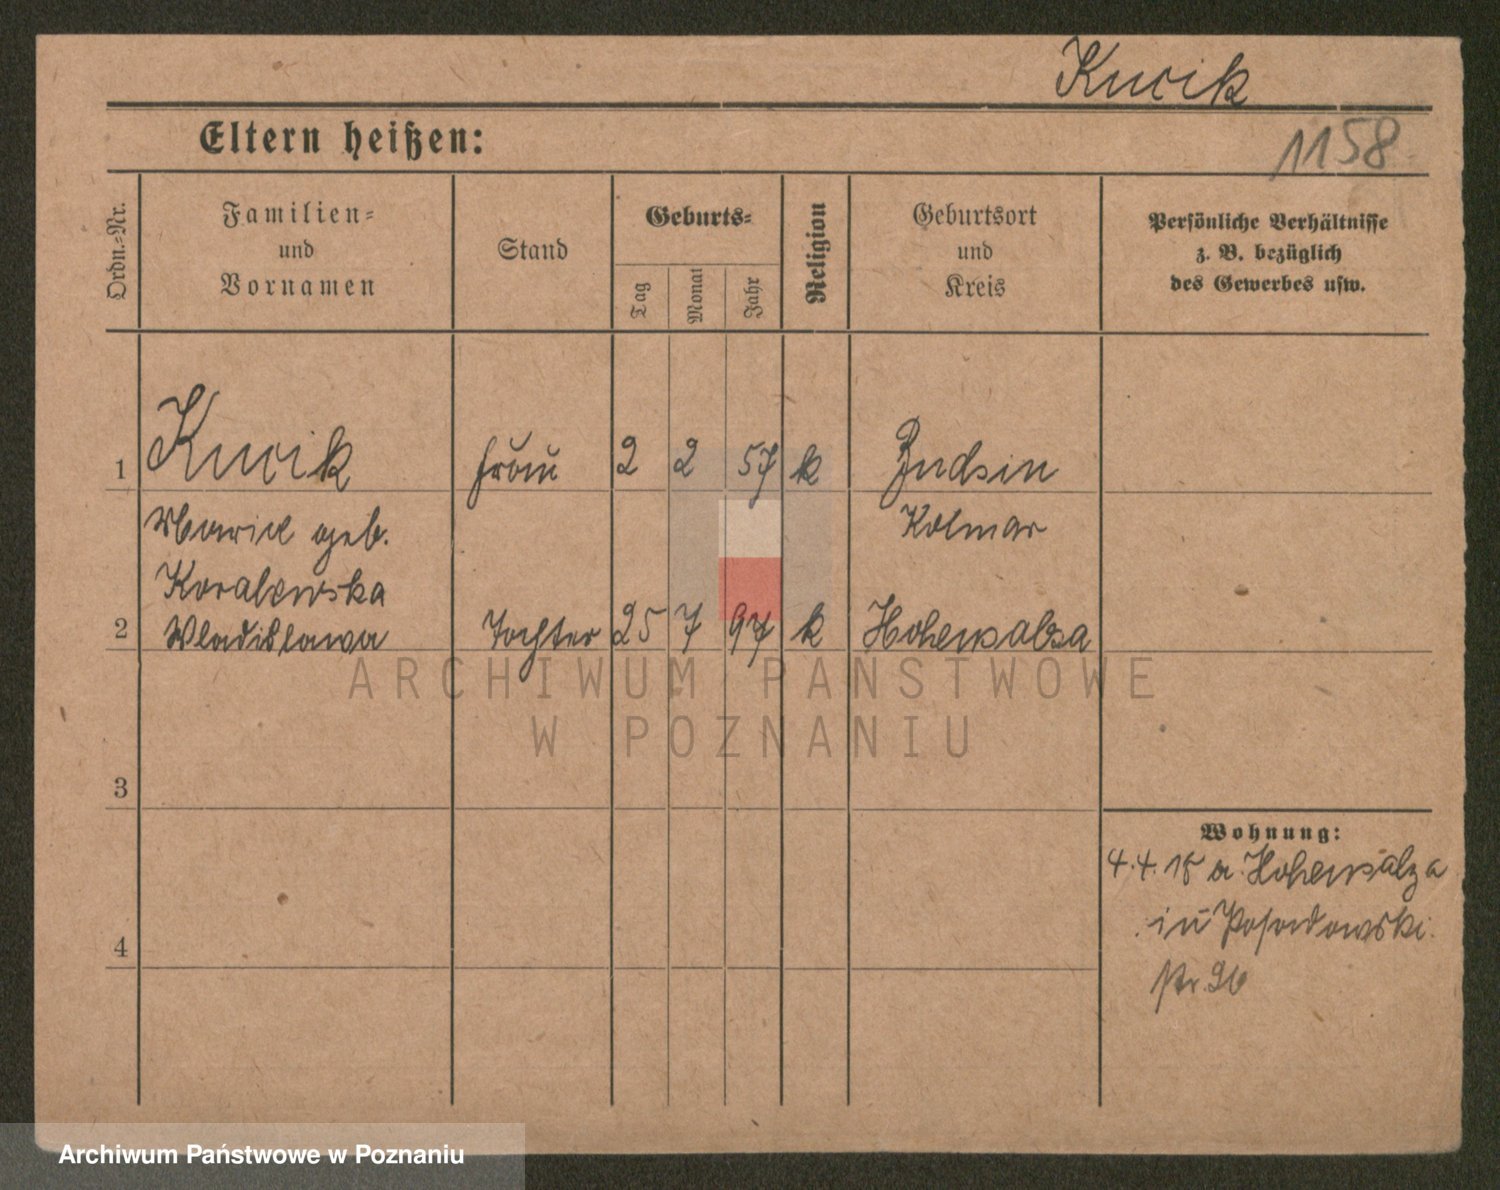 Kucik
Eltern heißen:
1158
Ordn.-Nr.
Familien-
und
Vornamen
Stand
Geburts-
Tag
Monat
Jahr
Religion
Geburtsort
und
Kreis
Persönliche Verhältnisse
z. B. bezüglich
des Gewerbes usw.
1 Kucik Frau 2 2 57 k Budsin
Maria geb. Kolmar
Koralewska
2 Wladislawa Tochter 25 7 97 k Hohensalza
ARCHIWUM PAŃSTWOWE
W POZNANIU
3
Wohnung:
4.4.18 a. Hohensalza
in Posadowski
4
str. 26
Archiwum Państwowe w Poznaniu